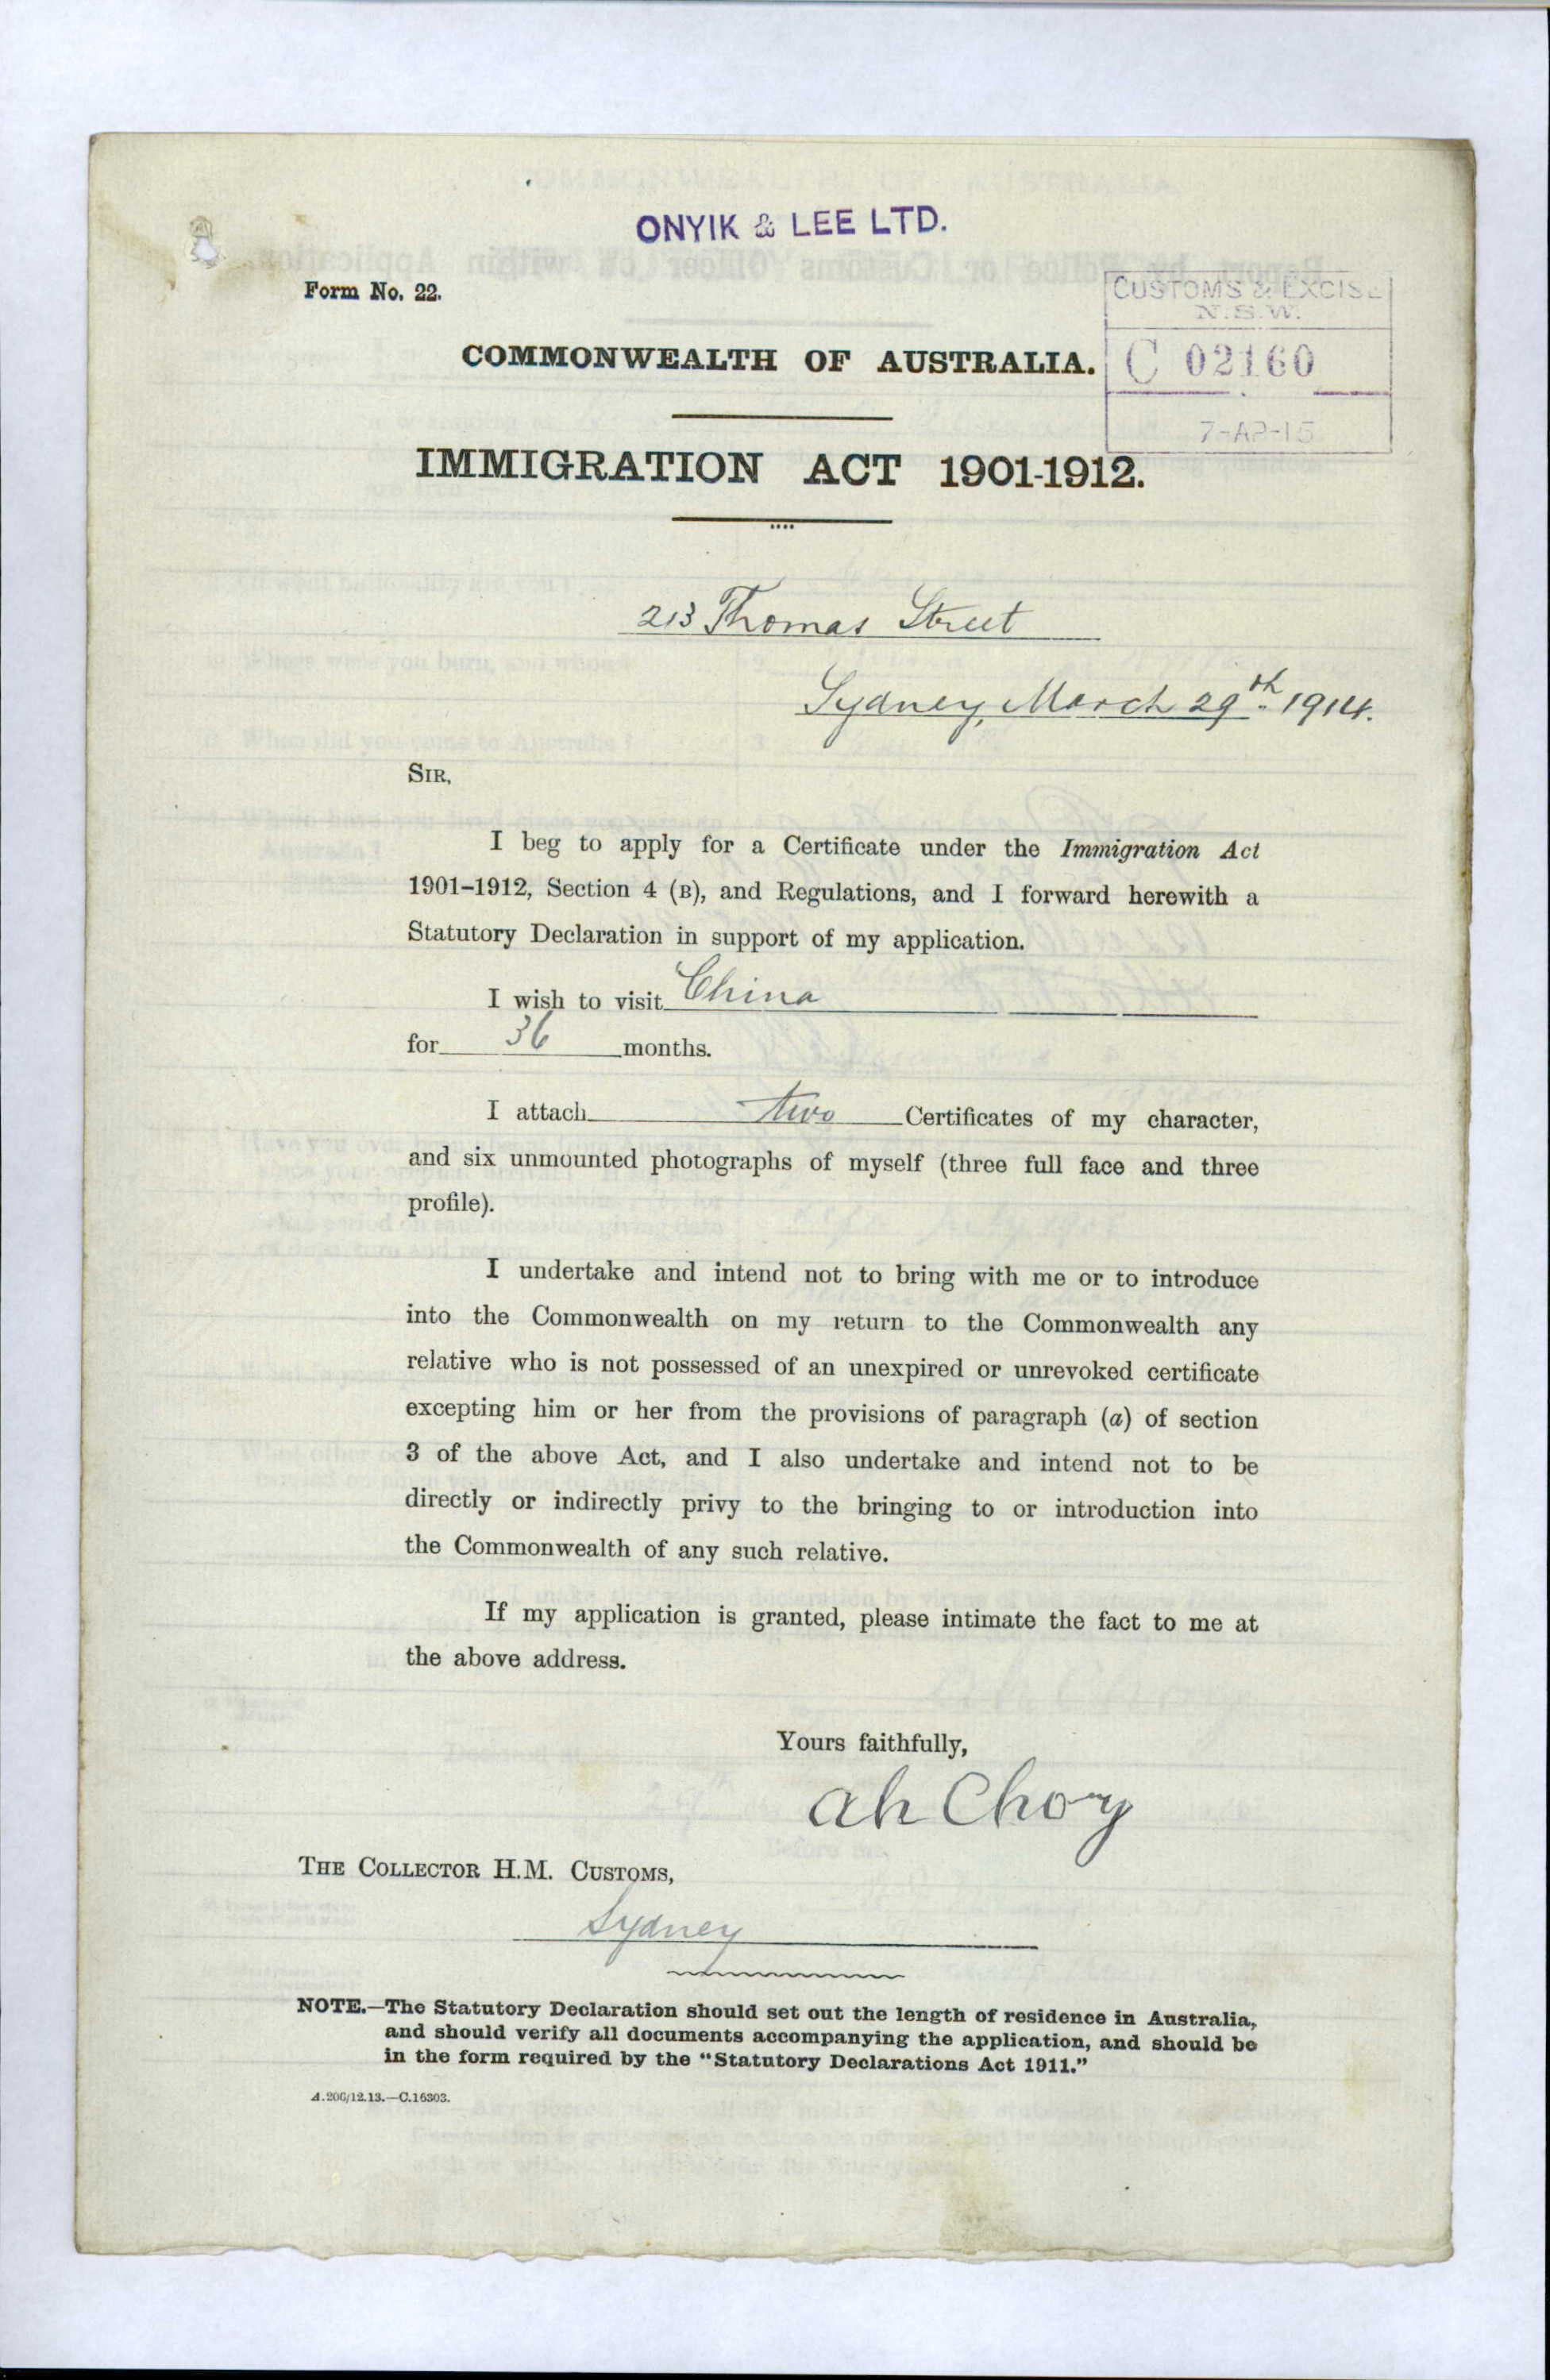 ONYIK & LEE LTD.
Form No. 22.
CUSTOMS & EXCISE
N.S.W.
C 02160
7-AP-15
COMMONWEALTH OF AUSTRALIA.
IMMIGRATION ACT 1901-1912.
213 Thomas Street
Sydney, March 29th 1914.
SIR,
I beg to apply for a Certificate under the Immigration Act
1901–1912, Section 4 (B), and Regulations, and I forward herewith a
Statutory Declaration in support of my application.
I wish to visit China
for 36 months.
I attach two Certificates of my character,
and six unmounted photographs of myself (three full face and three
profile).
I undertake and intend not to bring with me or to introduce
into the Commonwealth on my return to the Commonwealth any
relative who is not possessed of an unexpired or unrevoked certificate
excepting him or her from the provisions of paragraph (a) of section
3 of the above Act, and I also undertake and intend not to be
directly or indirectly privy to the bringing to or introduction into
the Commonwealth of any such relative.
If my application is granted, please intimate the fact to me at
the above address.
Yours faithfully,
ah Choy
THE COLLECTOR H.M. CUSTOMS,
Sydney
NOTE.—The Statutory Declaration should set out the length of residence in Australia,
and should verify all documents accompanying the application, and should be
in the form required by the "Statutory Declarations Act 1911."
A.200/12.13.—C.16303.